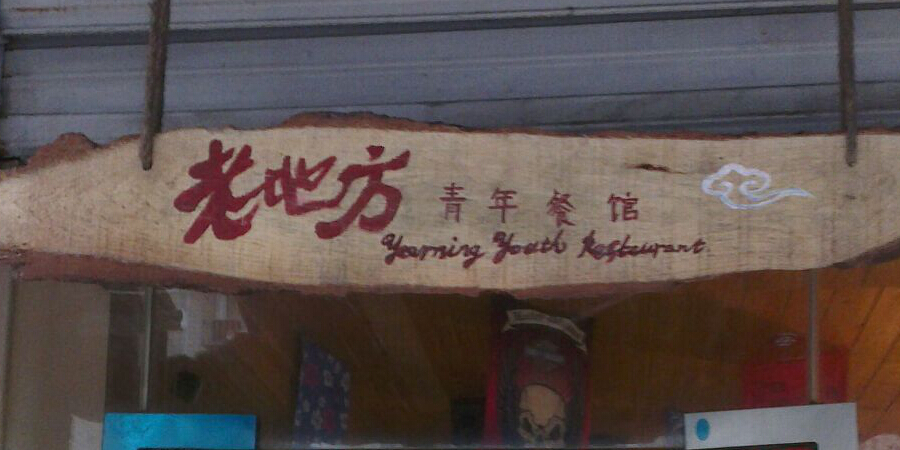 老地方 青年餐馆
Yearning Youth Restaurant